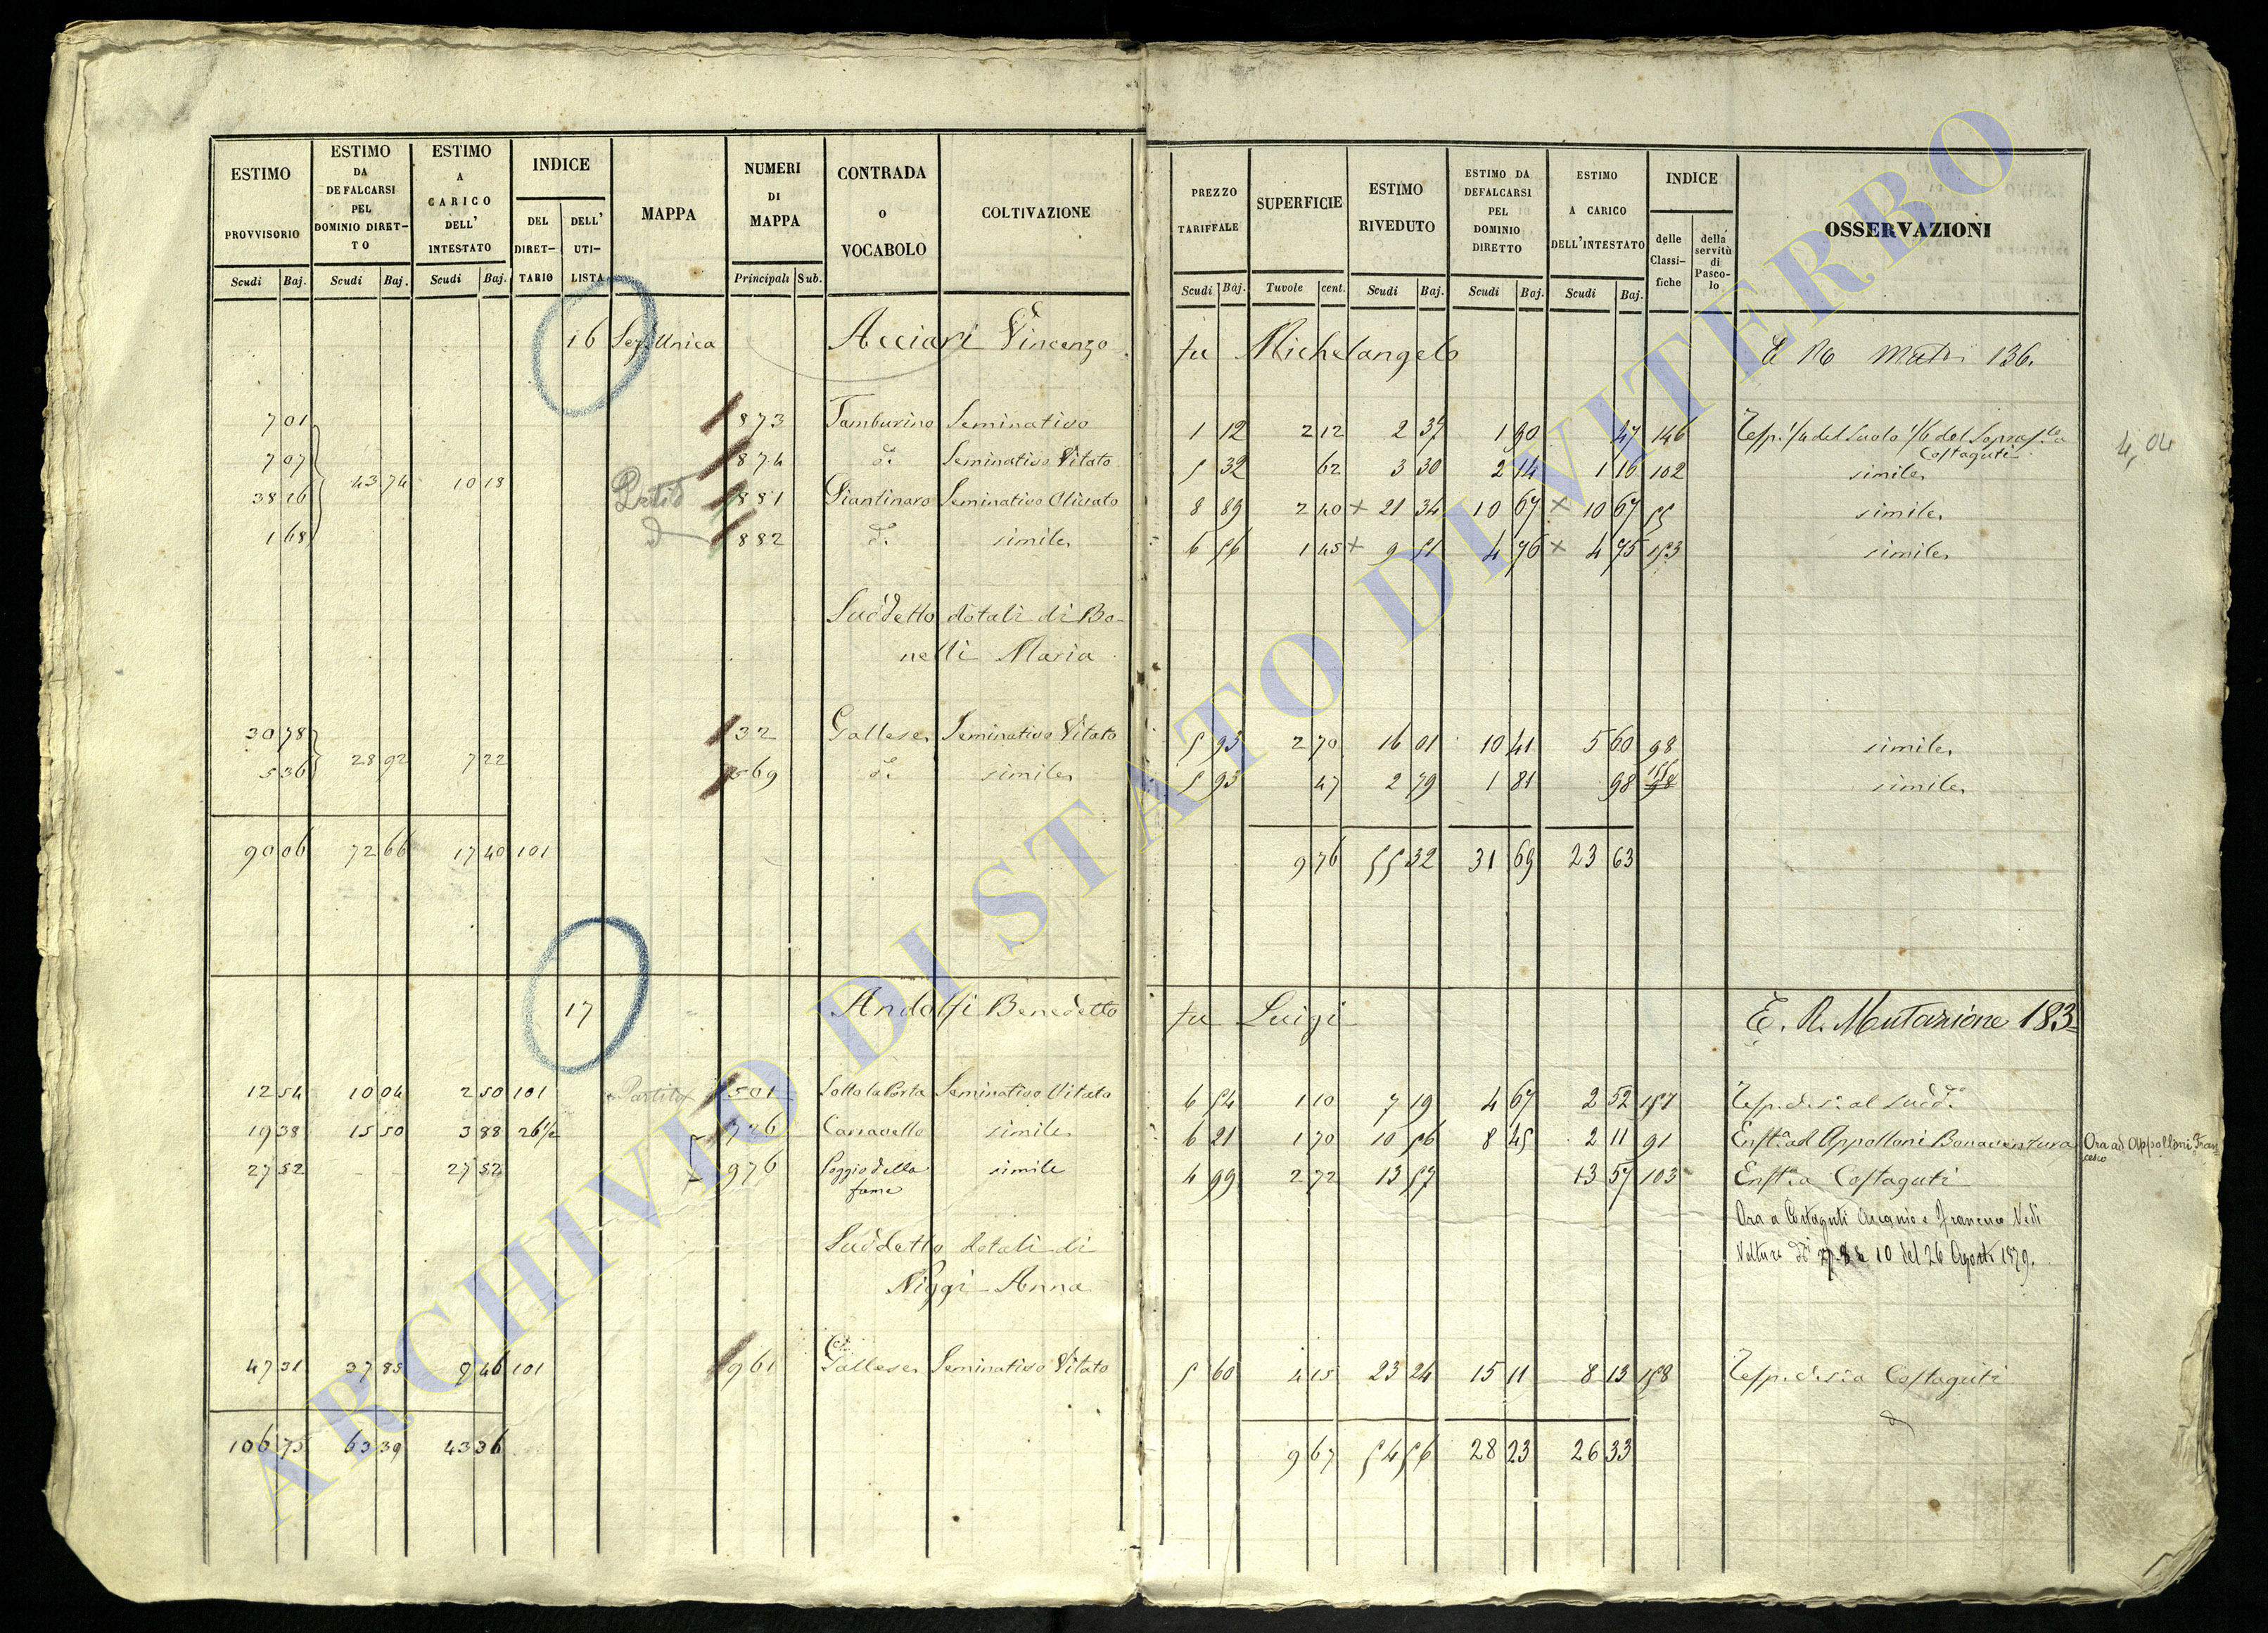 ESTIMO PROVVISORIO Scudi Baj.
ESTIMO DA DEFALCARSI PEL DOMINIO DIRET-TO Scudi Baj.
ESTIMO A CARICO DELL' INTESTATO Scudi Baj.
INDICE DEL DIRET-TARIO DELL' UTI-LISTA
MAPPA
NUMERI DI MAPPA Principali Sub.
CONTRADA O VOCABOLO
COLTIVAZIONE
PREZZO TARIFFALE Scudi Baj.
SUPERFICIE Tavole cent.
ESTIMO RIVEDUTO Scudi Baj.
ESTIMO DA DEFALCARSI PEL DOMINIO DIRETTO Scudi Baj.
ESTIMO A CARICO DELL'INTESTATO Scudi Baj.
INDICE delle Classi-fiche della servitù di Pasco-lo
OSSERVAZIONI
16 Sez. Unica Acciari Vincenzo fu Michelangelo 136.
7 01 873 Tamburino Seminativo 1 12 2 12 2 37 1 90 47 146
7 07 874 d.o Seminativo Vitato 5 32 62 3 30 2 14 1 16 102 simile
Costaguti
38 16 43 74 10 18 881 Piantinaro Seminativo Olivato 8 89 2 40 + 21 34 10 67 × 10 67 55 simile
1 68 882 d.o simile 6 56 1 45 + 9 51 4 76 × 4 75 153 simile
Suddetto dotali di Bo-
nelli Maria
30 78 28 92 7 22 32 Gallese Seminativo Vitato 5 93 2 70 16 01 10 41 5 60 98 simile
5 36 569 d.o simile 5 93 47 2 79 1 81 98 simile
90 06 72 66 17 40 101 9 76 55 32 31 69 23 63
17 Andolfi Benedetto fu Luigi E. R. Mutazione 183
12 54 10 04 2 50 101 Partita 501 Sotto la Porta Seminativo Vitato 6 54 1 10 7 19 4 67 2 52 157
19 38 15 50 3 88 26½ 776 Canavello simile 6 21 1 70 10 56 8 45 2 11 91 Enft.a ad Appolloni Bonaventura Ora ad Appolloni Fran
cesco
27 52 27 52 976 Poggio della simile 4 99 2 72 13 57 13 57 103 Enft.a Costaguti
fame
Ora a Costaguti Ascanio e Francesco Vedi
Volture 10 del 26 Agosto 1879.
Suddetto dotali di
Niggi Anna
47 31 37 85 9 46 101 961 Gallese Seminativo Vitato 5 60 4 15 23 24 15 11 8 13 158 Costaguti
106 75 63 39 43 36 9 67 54 56 28 23 26 33
ARCHIVIO DI STATO DI VITERBO